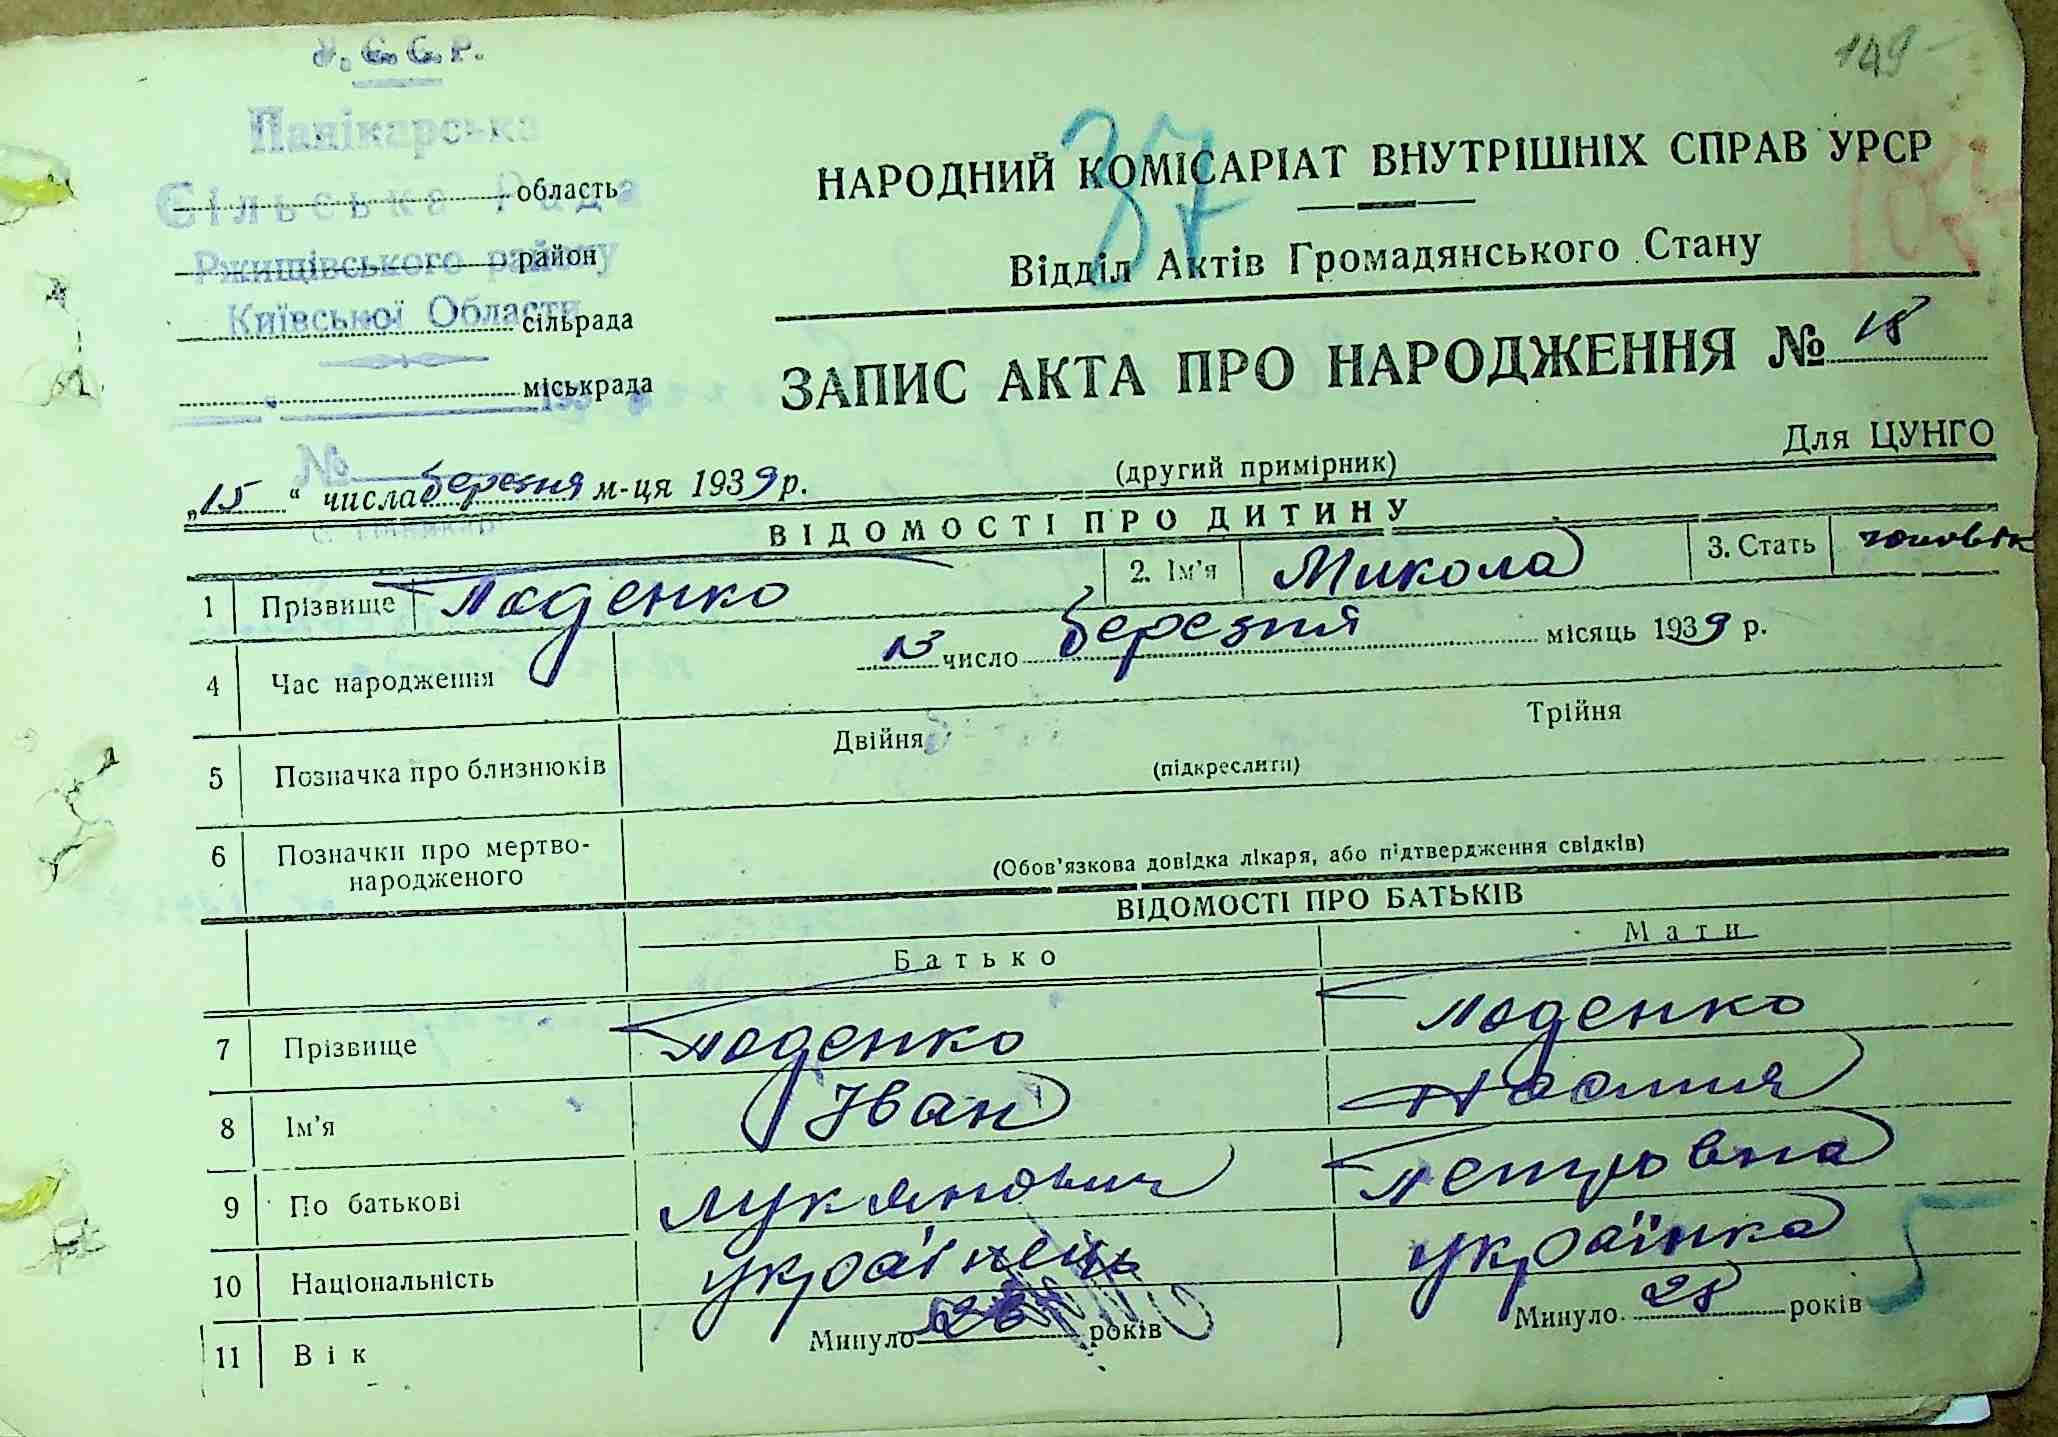 У.С.С.Р.
149
Панікарська
37
НАРОДНИЙ КОМІСАРІАТ ВНУТРІШНІХ СПРАВ УРСР
Сільська Рада
область
Ржищівського району
район
Відділ Актів Громадянського Стану
Київської Области
сільрада
міськрада
ЗАПИС АКТА ПРО НАРОДЖЕННЯ № 18
Для ЦУНГО
№
(другий примірник)
„15“ числа березня м-ця 1939 р.
ВІДОМОСТІ ПРО ДИТИНУ
1 Прізвище Паденко 2. Ім'я Микола 3. Стать чоловік
4 Час народження 13 число березня місяць 1939 р.
5 Позначка про близнюків Двійня Трійня
(підкреслити)
6 Позначки про мертво-
народженого
(Обов'язкова довідка лікаря, або підтвердження свідків)
ВІДОМОСТІ ПРО БАТЬКІВ
Батько Мати
7 Прізвище Паденко Паденко
8 Ім'я Іван
9 По батькові Лукянович Петровна
10 Національність українець українка
5
11 Вік Минуло років Минуло 28 років